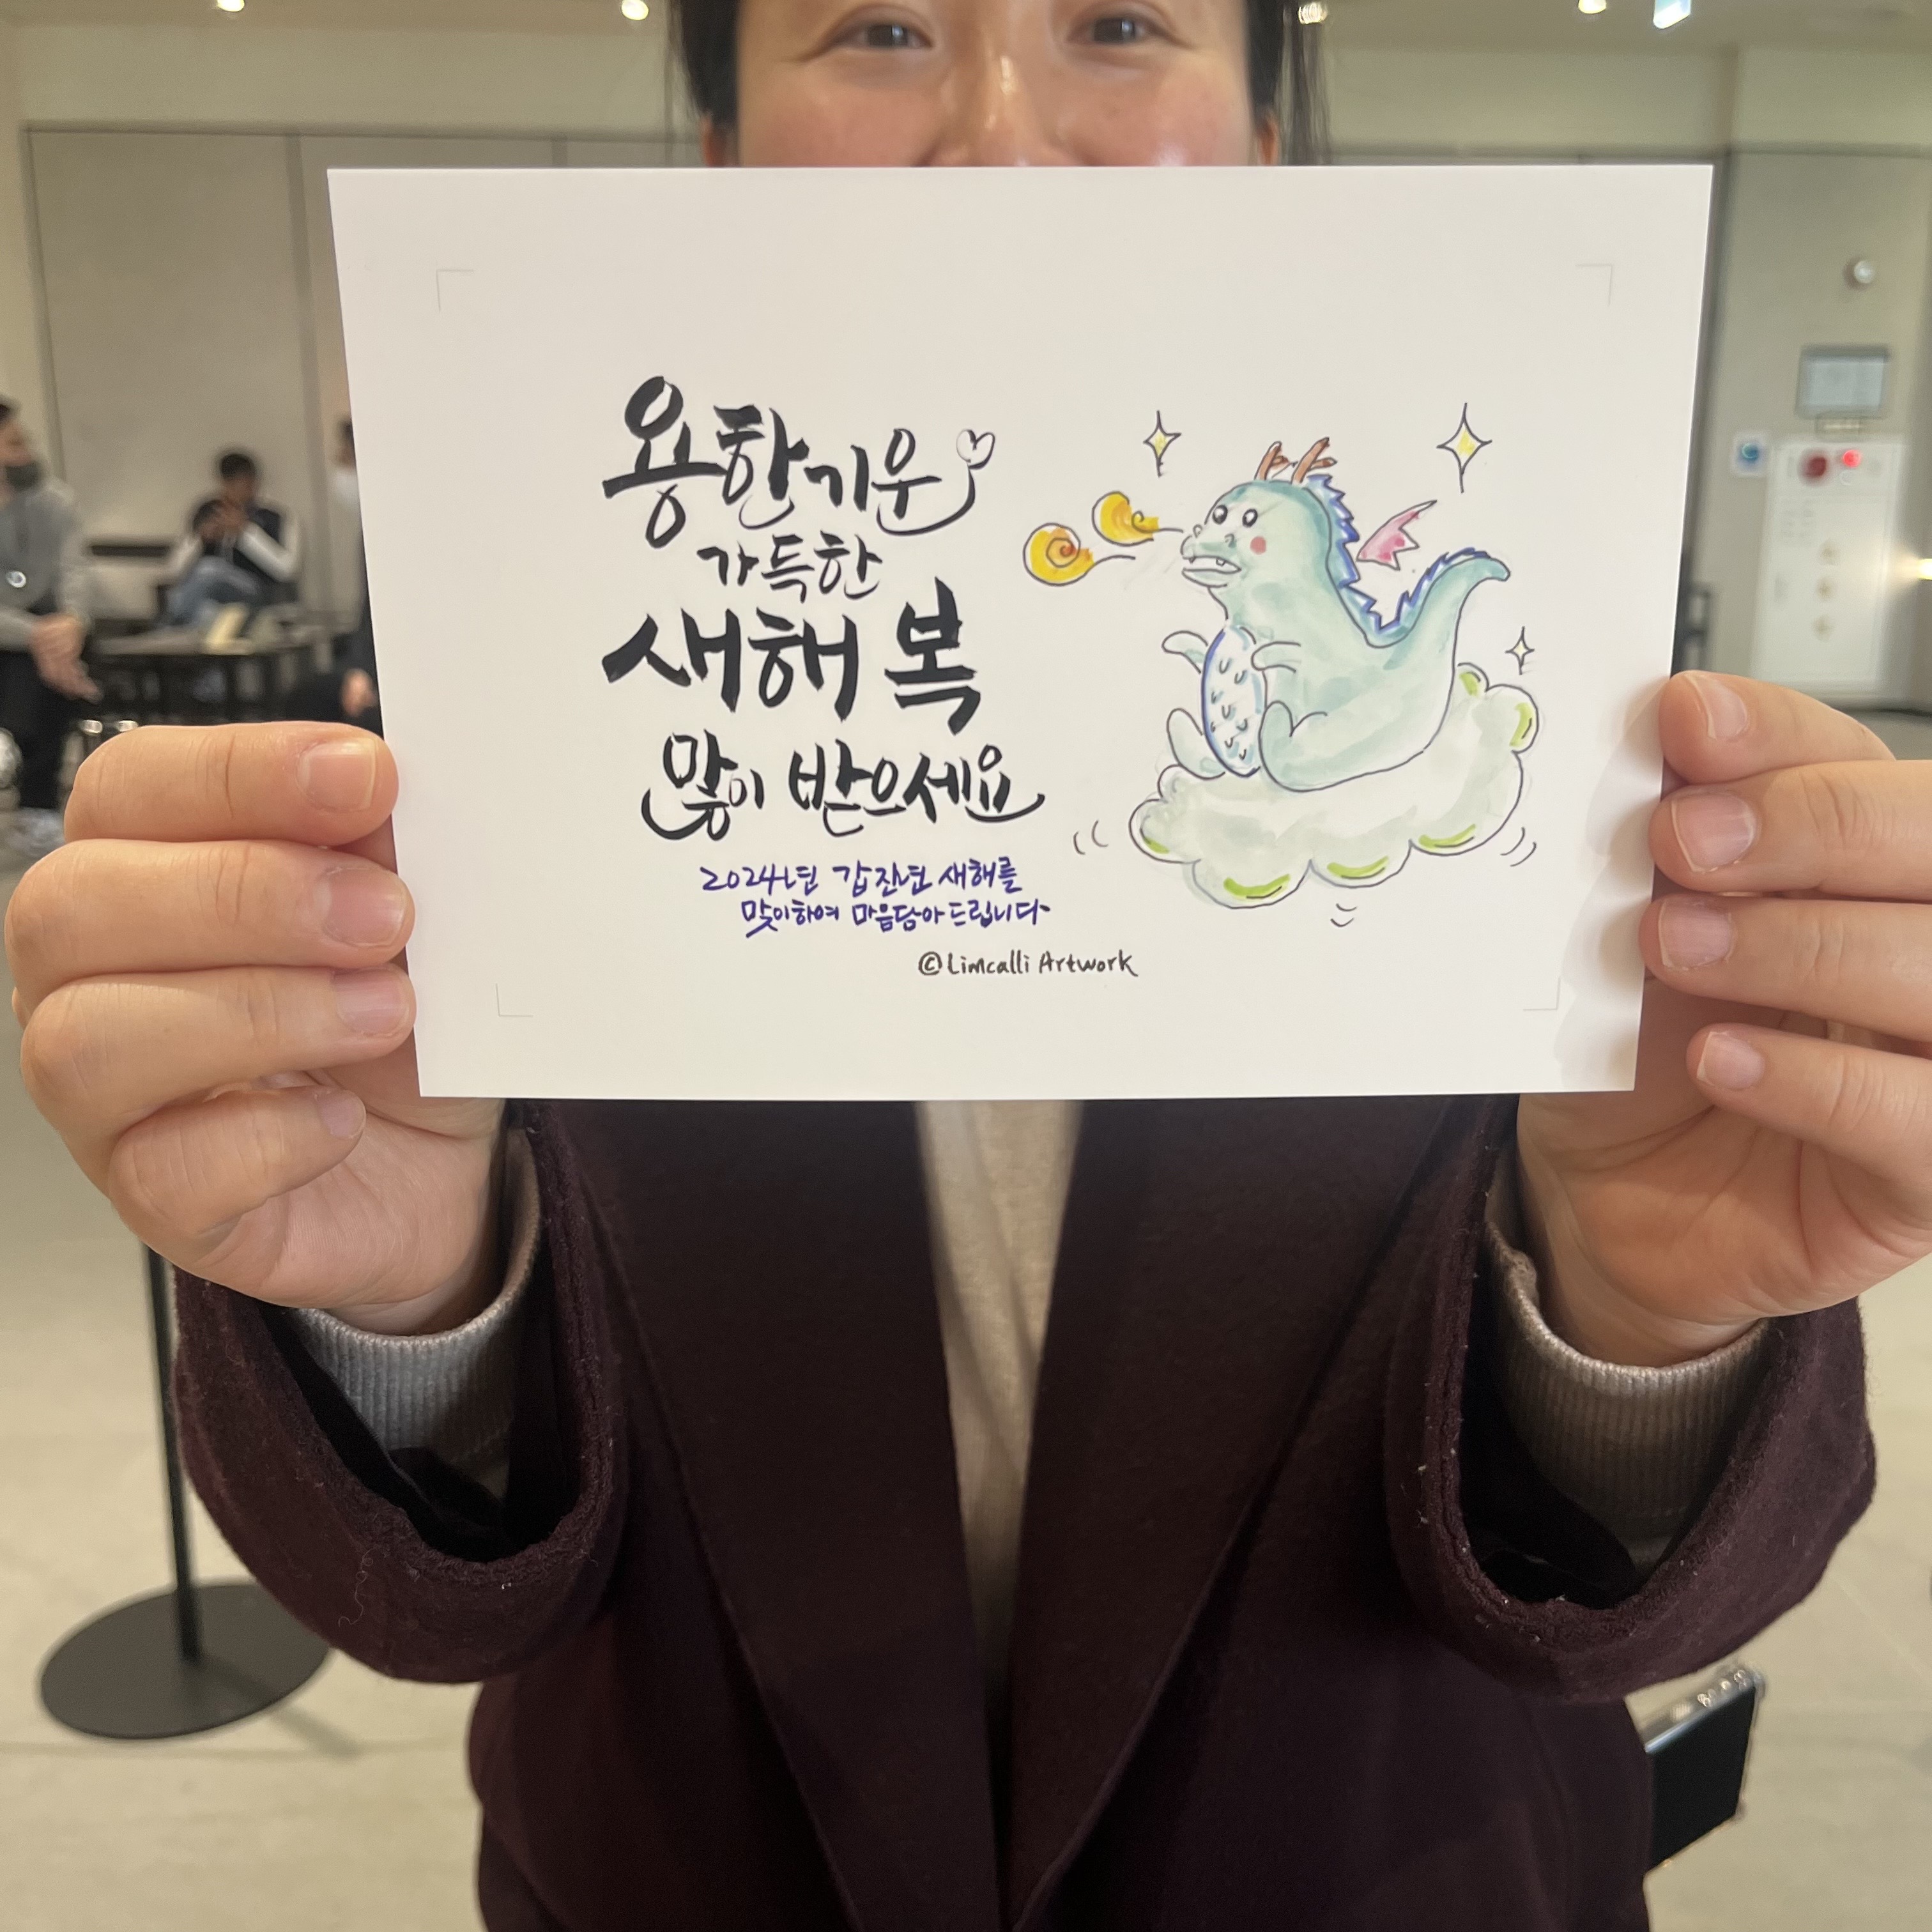 용한 기운
가득한
새해 복
많이 받으세요
2024년 갑진년 새해를
맞이하여 마음담아 드립니다
©Limcalli Artwork